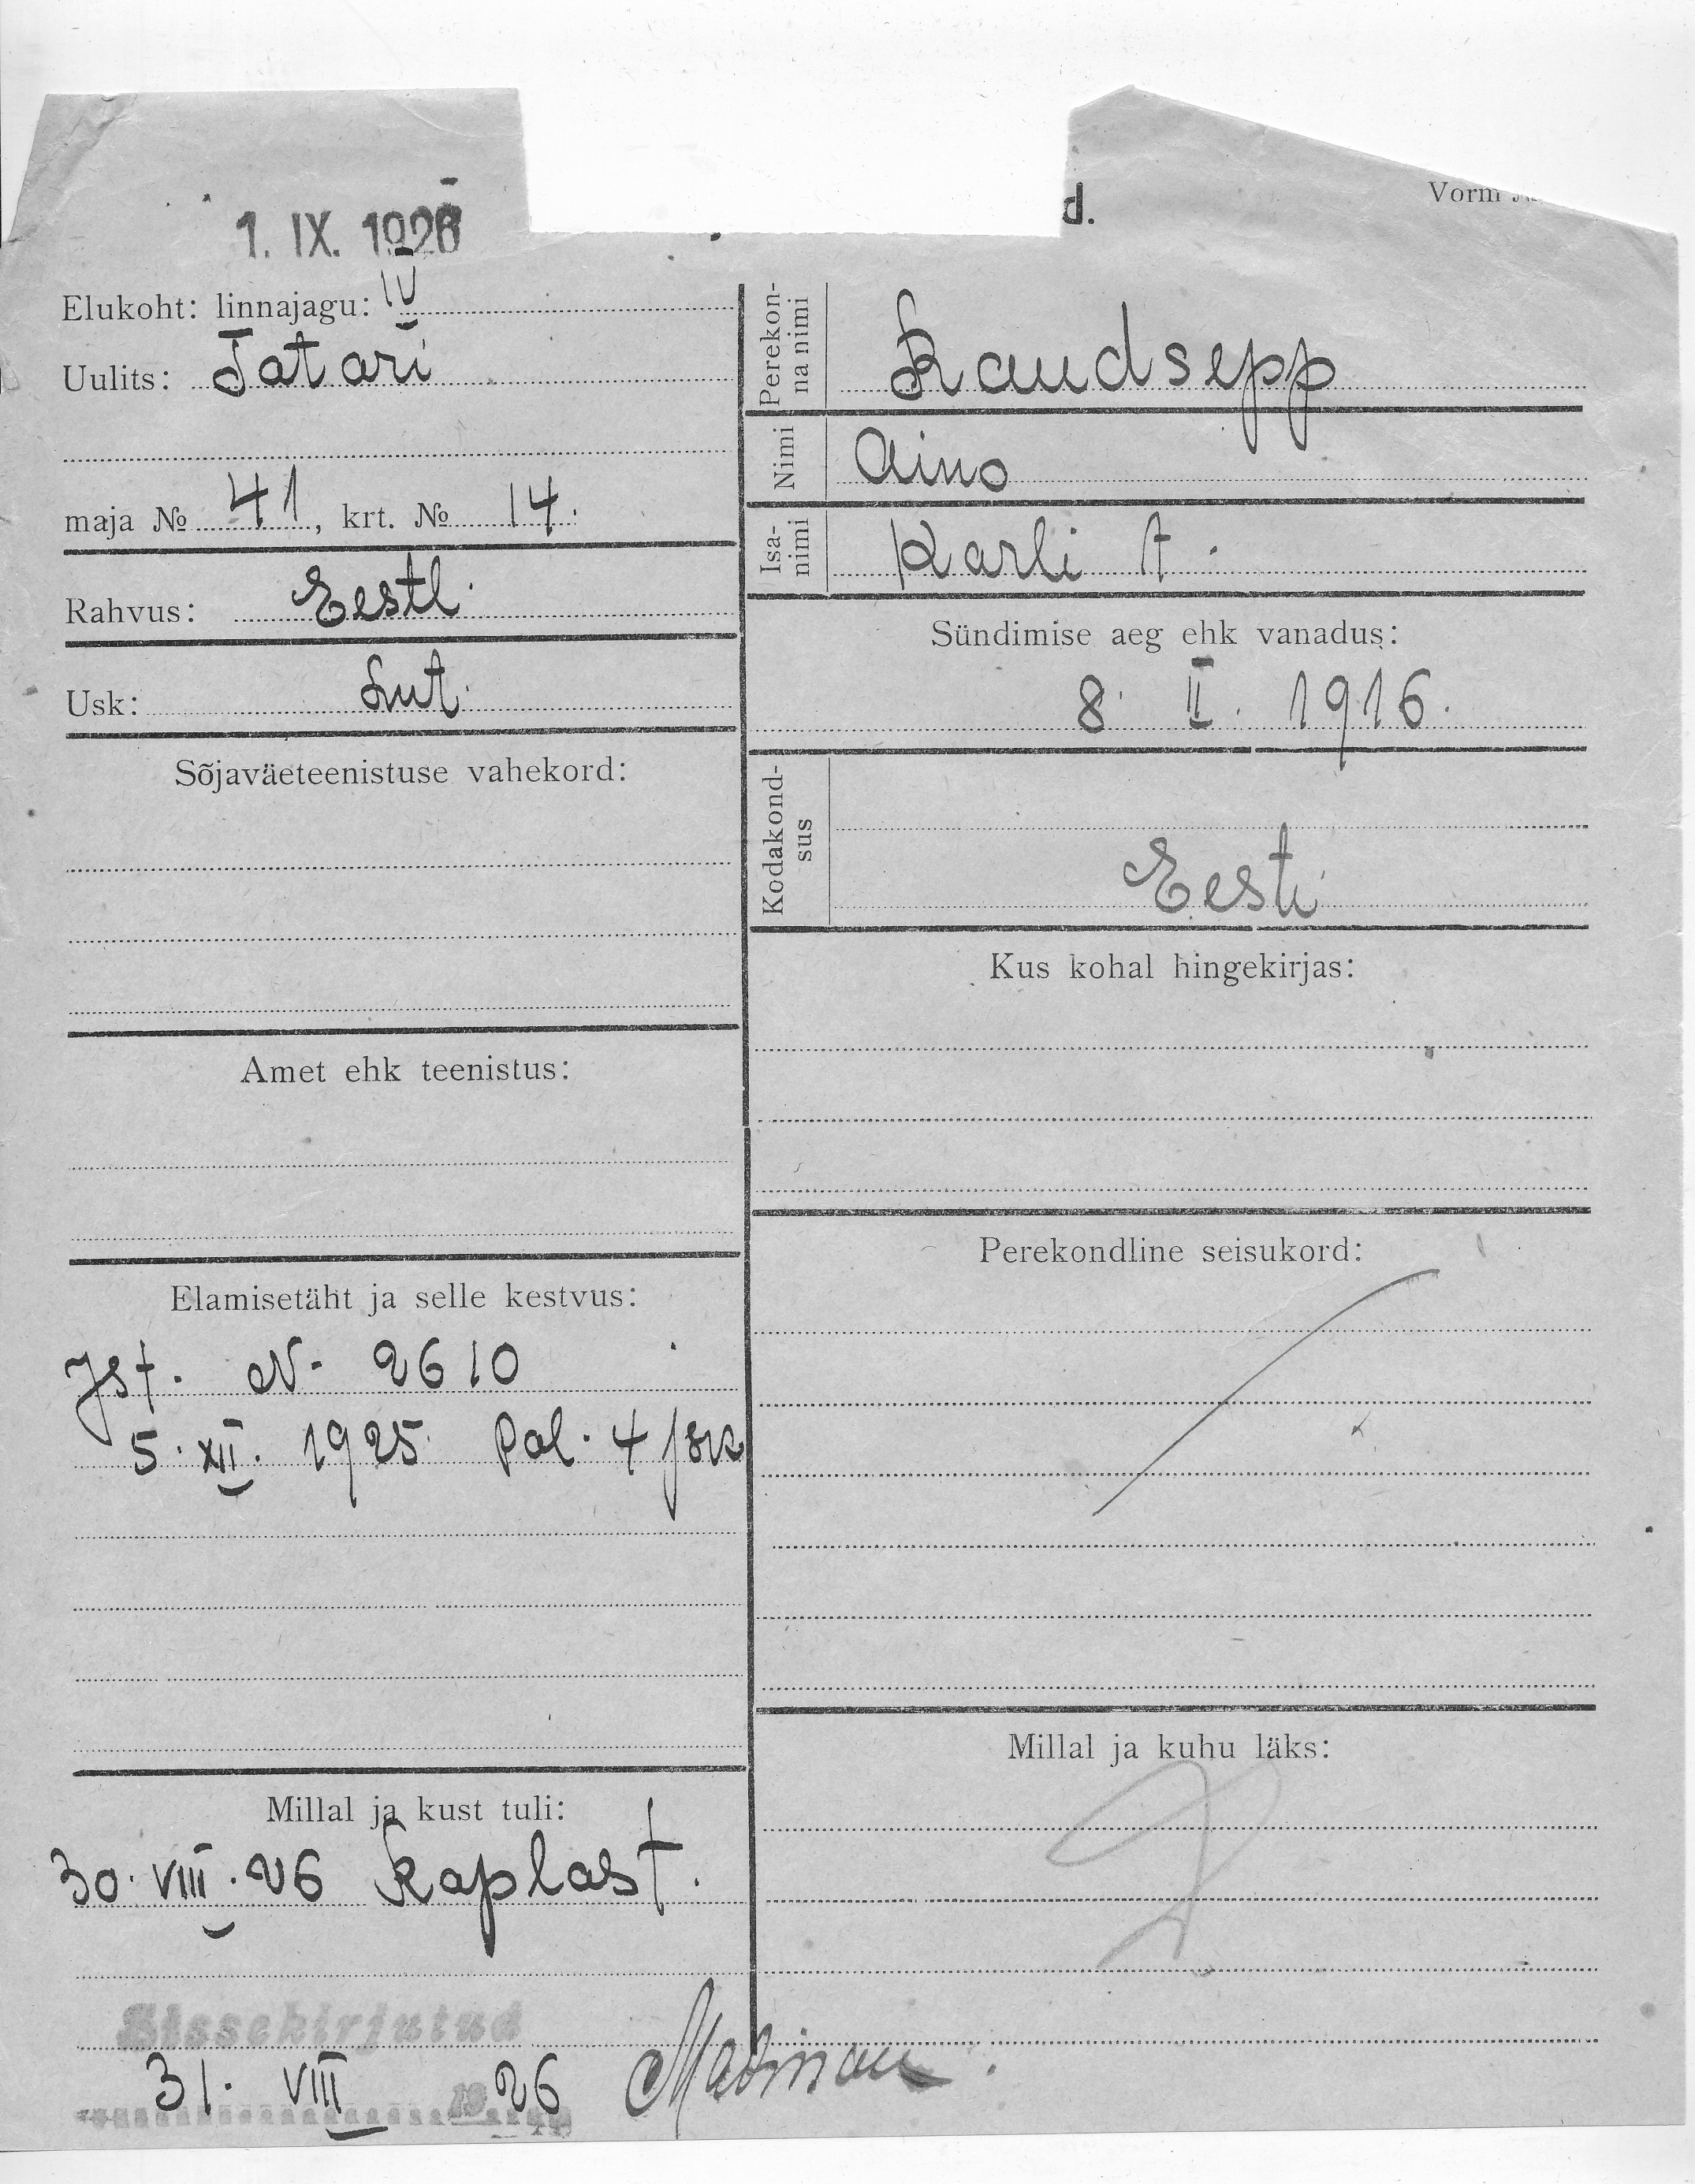 1. IX. 1926
d.
Vorm
Elukoht: linnajagu: IV
Uulits: Tatari
maja № 41, krt. № 14.
Rahvus: Eestl.
Usk: Lut.
Sõjaväeteenistuse vahekord:
Amet ehk teenistus:
Elamisetäht ja selle kestvus:
Ist. N- 2610
5. XII. 1925. Pol. 4 jsk
Millal ja kust tuli:
30. VIII. 26 Raplast.
Sissekirjutud
31. VIII 1926
Perekon-
na nimi
Raudsepp
Nimi Aino
Isa-
nimi
Karli t.
Sündimise aeg ehk vanadus:
8. II. 1916.
Kodakond-
sus
Eesti
Kus kohal hingekirjas:
Perekondline seisukord:
Millal ja kuhu läks: